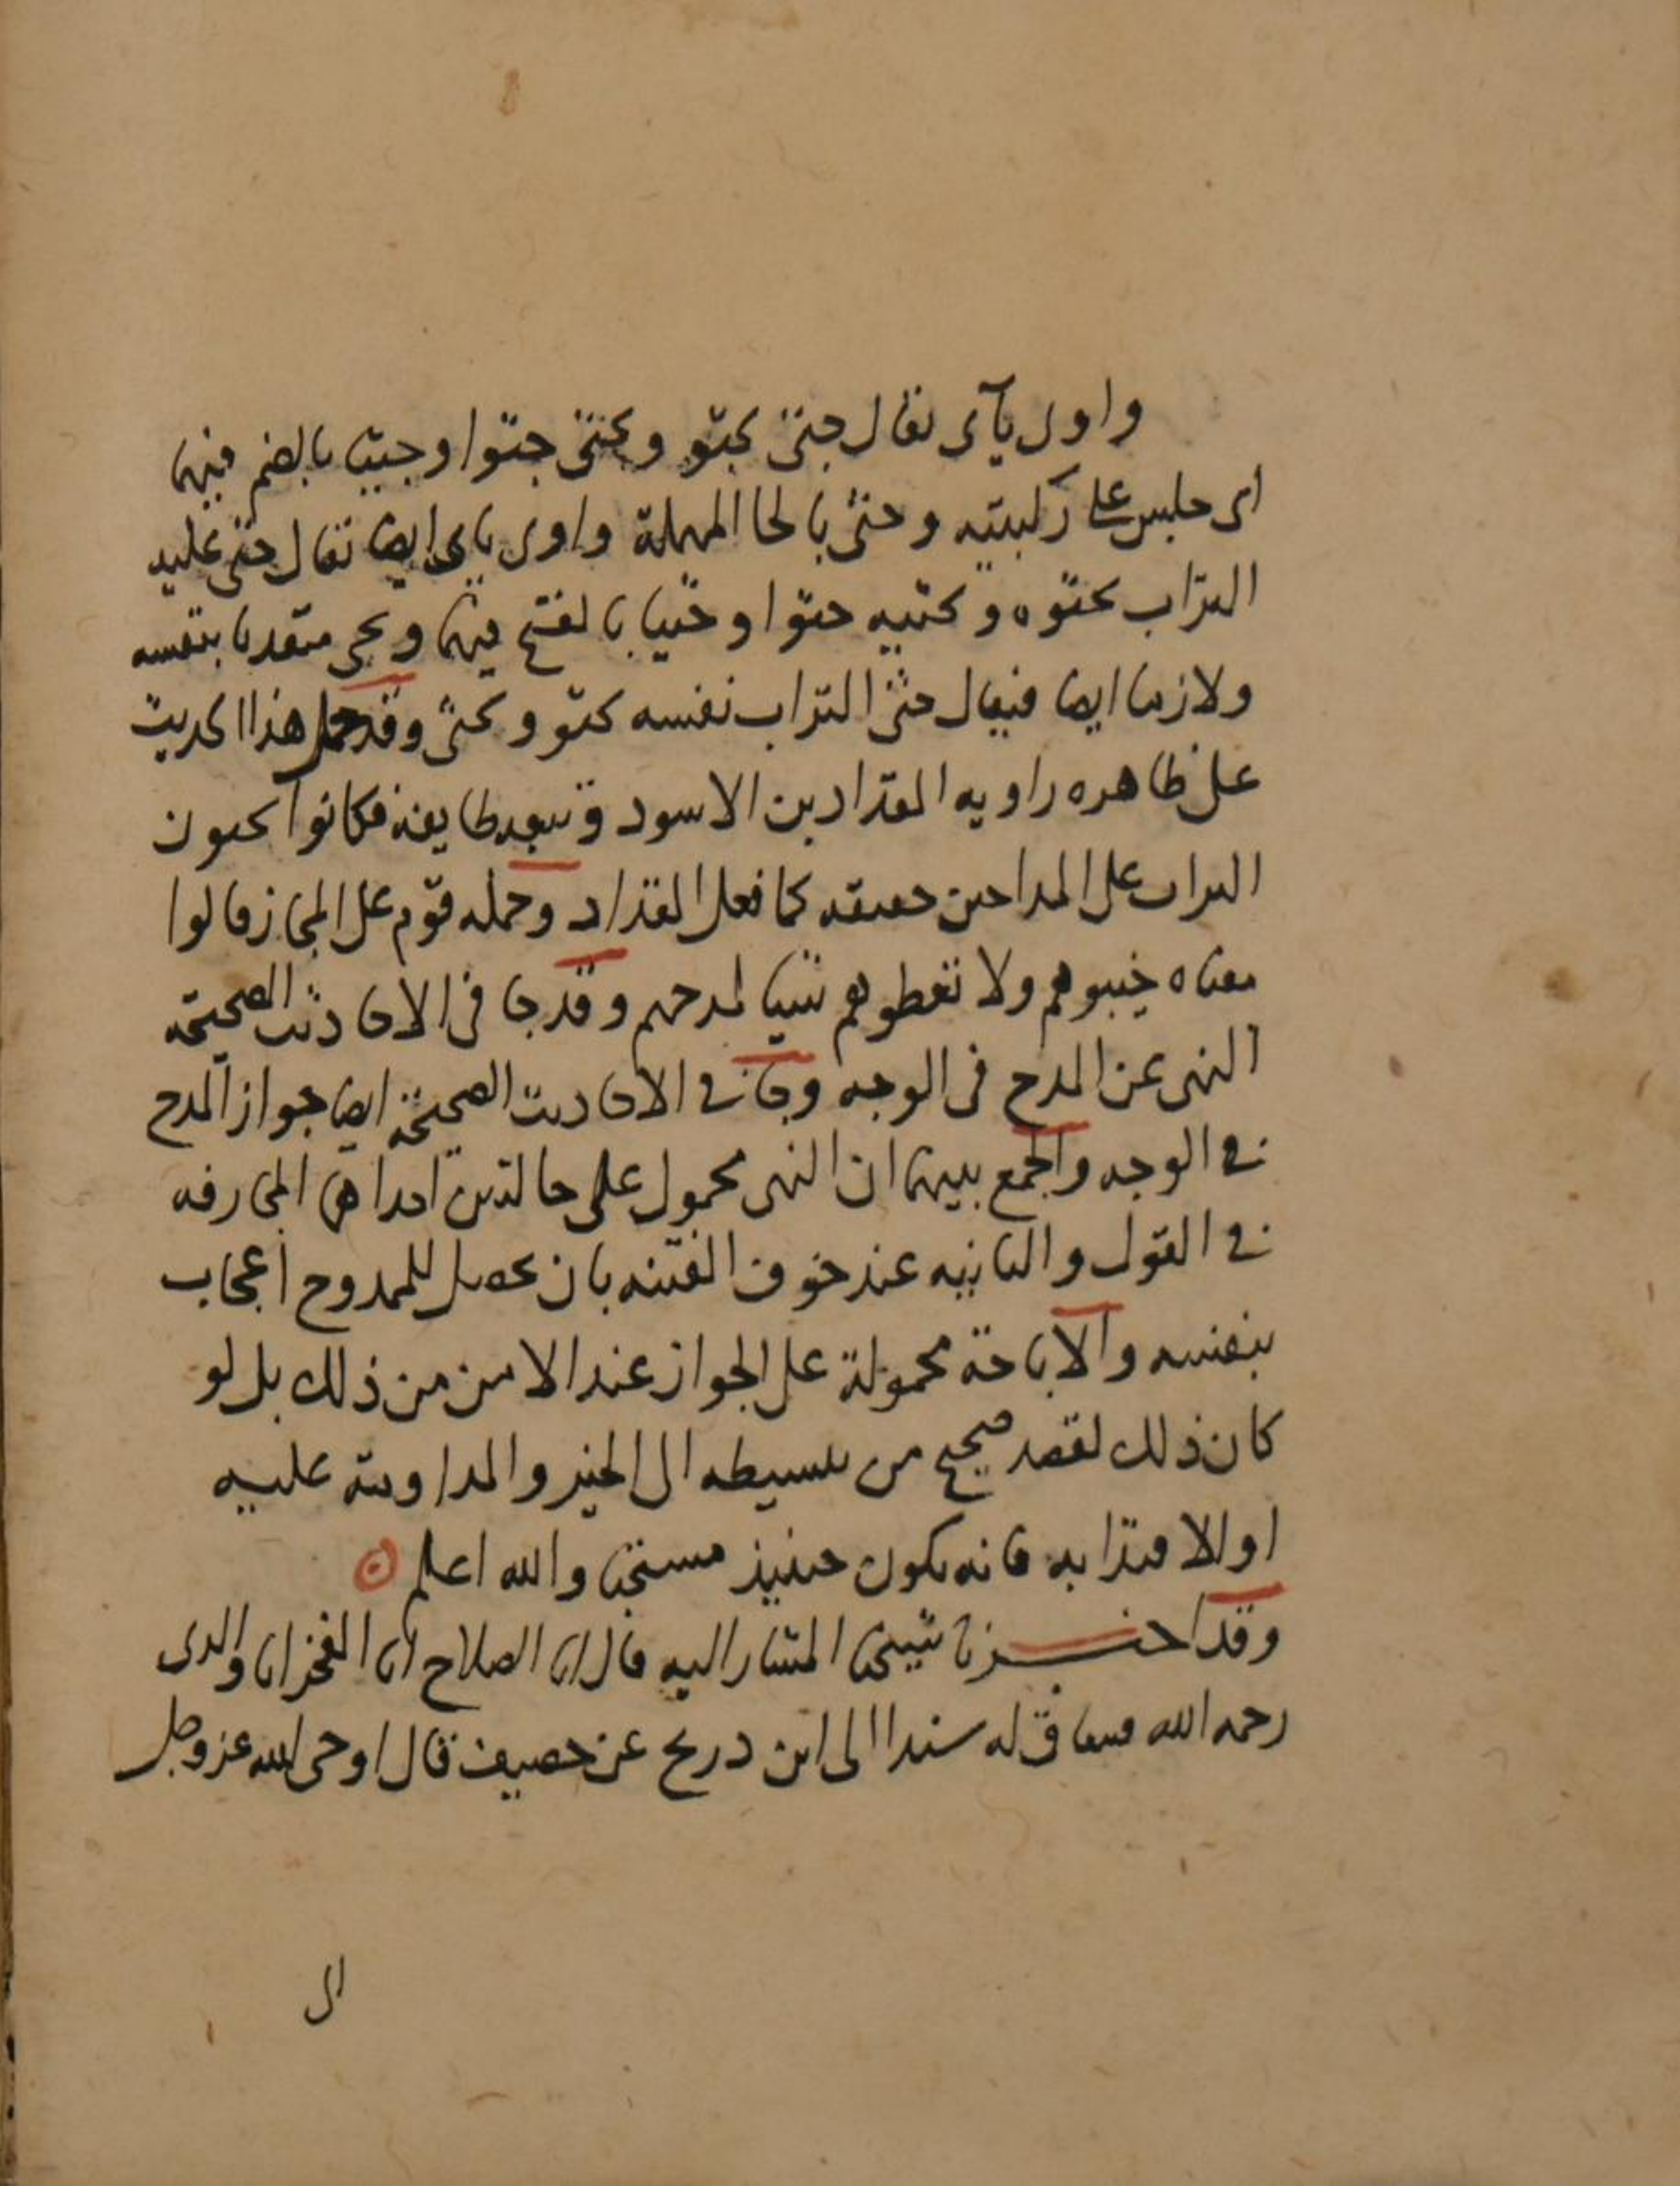 واوى يآى يقال جثى يجثو ويجثى جثوا وجثيا بالضم فيهما
اى جلس على ركبتيه وحثى بالحا المهملة واوى ياى ايضا يقال حثى عليه
التراب يحثوه ويحثيه حثوا وحثيا بالفتح فيهما ويجى متعديا بنفسه
ولازما ايضا فيقال حثى التراب نفسه يحثو ويحثى وقد حمل هذا الحديث
على ظاهره راويه المقداد بن الاسود وتبعه طايفة فكانوا يحثون
التراب على المداحين حقيقه كما فعل المقداد وحمله قوم على المجاز قالوا
معناه خيبوهم ولا تعطوهم شيئا لمدحهم وقد جا فى الاحاديث الصحيحة
النهى عن المدح فى الوجه وجا فى الاحاديث الصحيحة ايضا جواز المدح
فى الوجه والجمع بينهما ان النهى محمول على حالتين احداهما المجازفه
فى القول والثانيه عند خوف الفتنه بان يحصل للممدوح اعجاب
بنفسه والاباحة محمولة على الجواز عند الامن من ذلك بل لو
كان ذلك لقصد صحيح من تنشيطه الى الخير والمداومة عليه
او للاقتدا به فانه يكون حينيذ مستحبا والله اعلم
وقد اخبرنا شيخنا المشار اليه قال انا الصلاح انا الفخر انا والدى
رحمه الله فيما قاله سندا الى ابن دريح عن خصيف قال اوحى الله عز وجل
الى